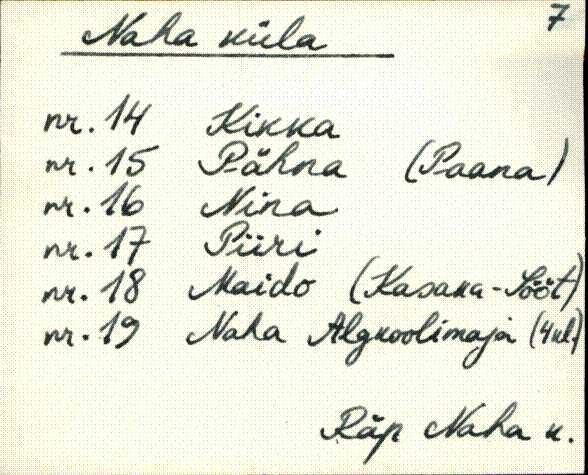 7
Naha küla
nr. 14 Kikka
nr. 15 Pähna (Paana)
nr. 16 Nina
nr. 17 Piiri
nr. 18 Maido (Kasaka-Sööt)
nr. 19 Naha Algkoolimaja (4kl.)
Räp Naha k.